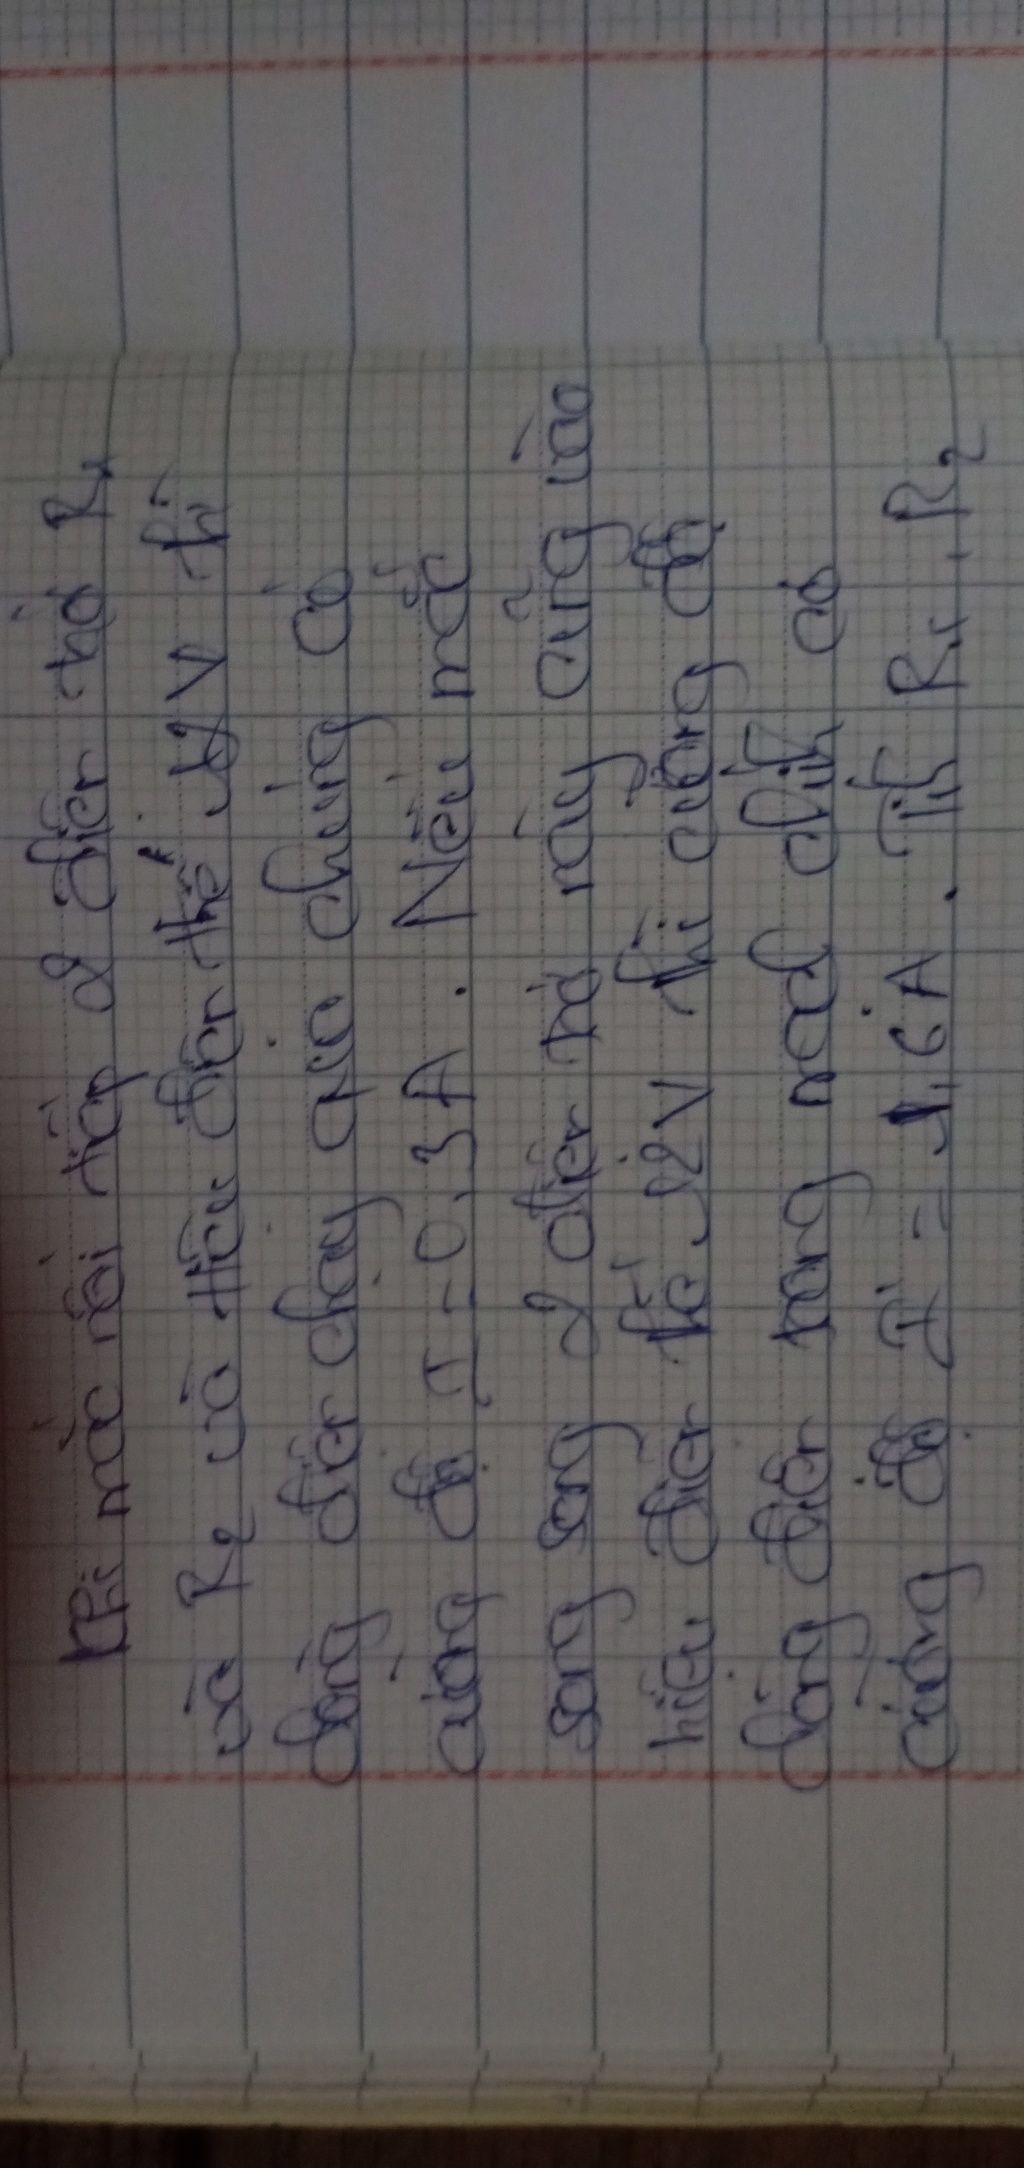 Khi mắc nối tiếp 2 điện trở R1
và R2 vào hiệu điện thế 12V thì
dòng điện chạy qua chúng có
cường độ I = 0,3A. Nếu mắc
song song 2 điện trở này cũng vào
hiệu điện thế 12V thì cường độ
dòng điện trong mạch chính có
cường độ I' = 1,6A. Tính R1, R2